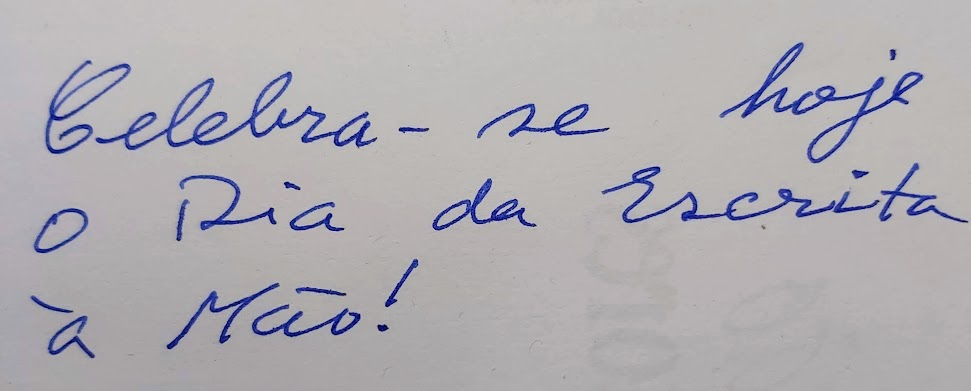 Celebra-se hoje
o Dia da Escrita
à Mão!